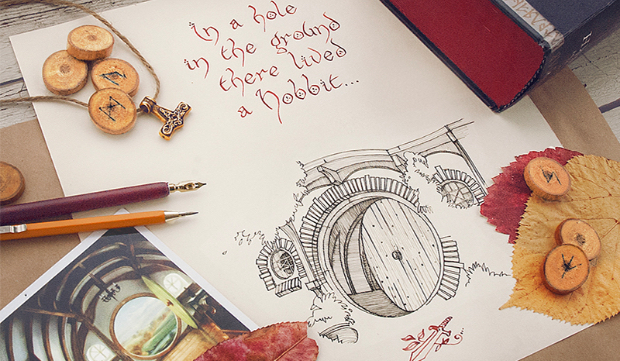 In a hole
in the ground
there lived
a hobbit...